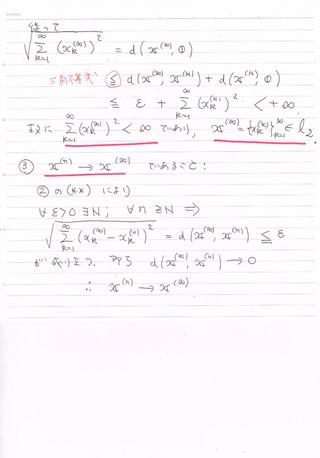 従って
√(∑_{k=1}^{∞} (x_k^{(∞)})^2) = d(x^{(∞)}, 0)
三角不等式 ≦ d(x^{(∞)}, x^{(N)}) + d(x^{(N)}, 0)
≦ ε + ∑_{k=1}^{∞} (x_k^{(N)})^2 < +∞
故に ∑_{k=1}^{∞} (x_k^{(∞)})^2 < ∞ であり, x^{(∞)} = {x_k^{(∞)}}_{k=1}^{∞} ∈ l_2.
③ x^{(n)} → x^{(∞)} であること:
②の(**)により
∀ε>0 ∃N; ∀n ≧ N ⇒
√(∑_{k=1}^{∞} (x_k^{(∞)} - x_k^{(n)})^2) = d(x^{(∞)}, x^{(n)}) ≦ ε
が成り立つ. 即ち d(x^{(∞)}, x^{(n)}) → 0
∴ x^{(n)} → x^{(∞)}